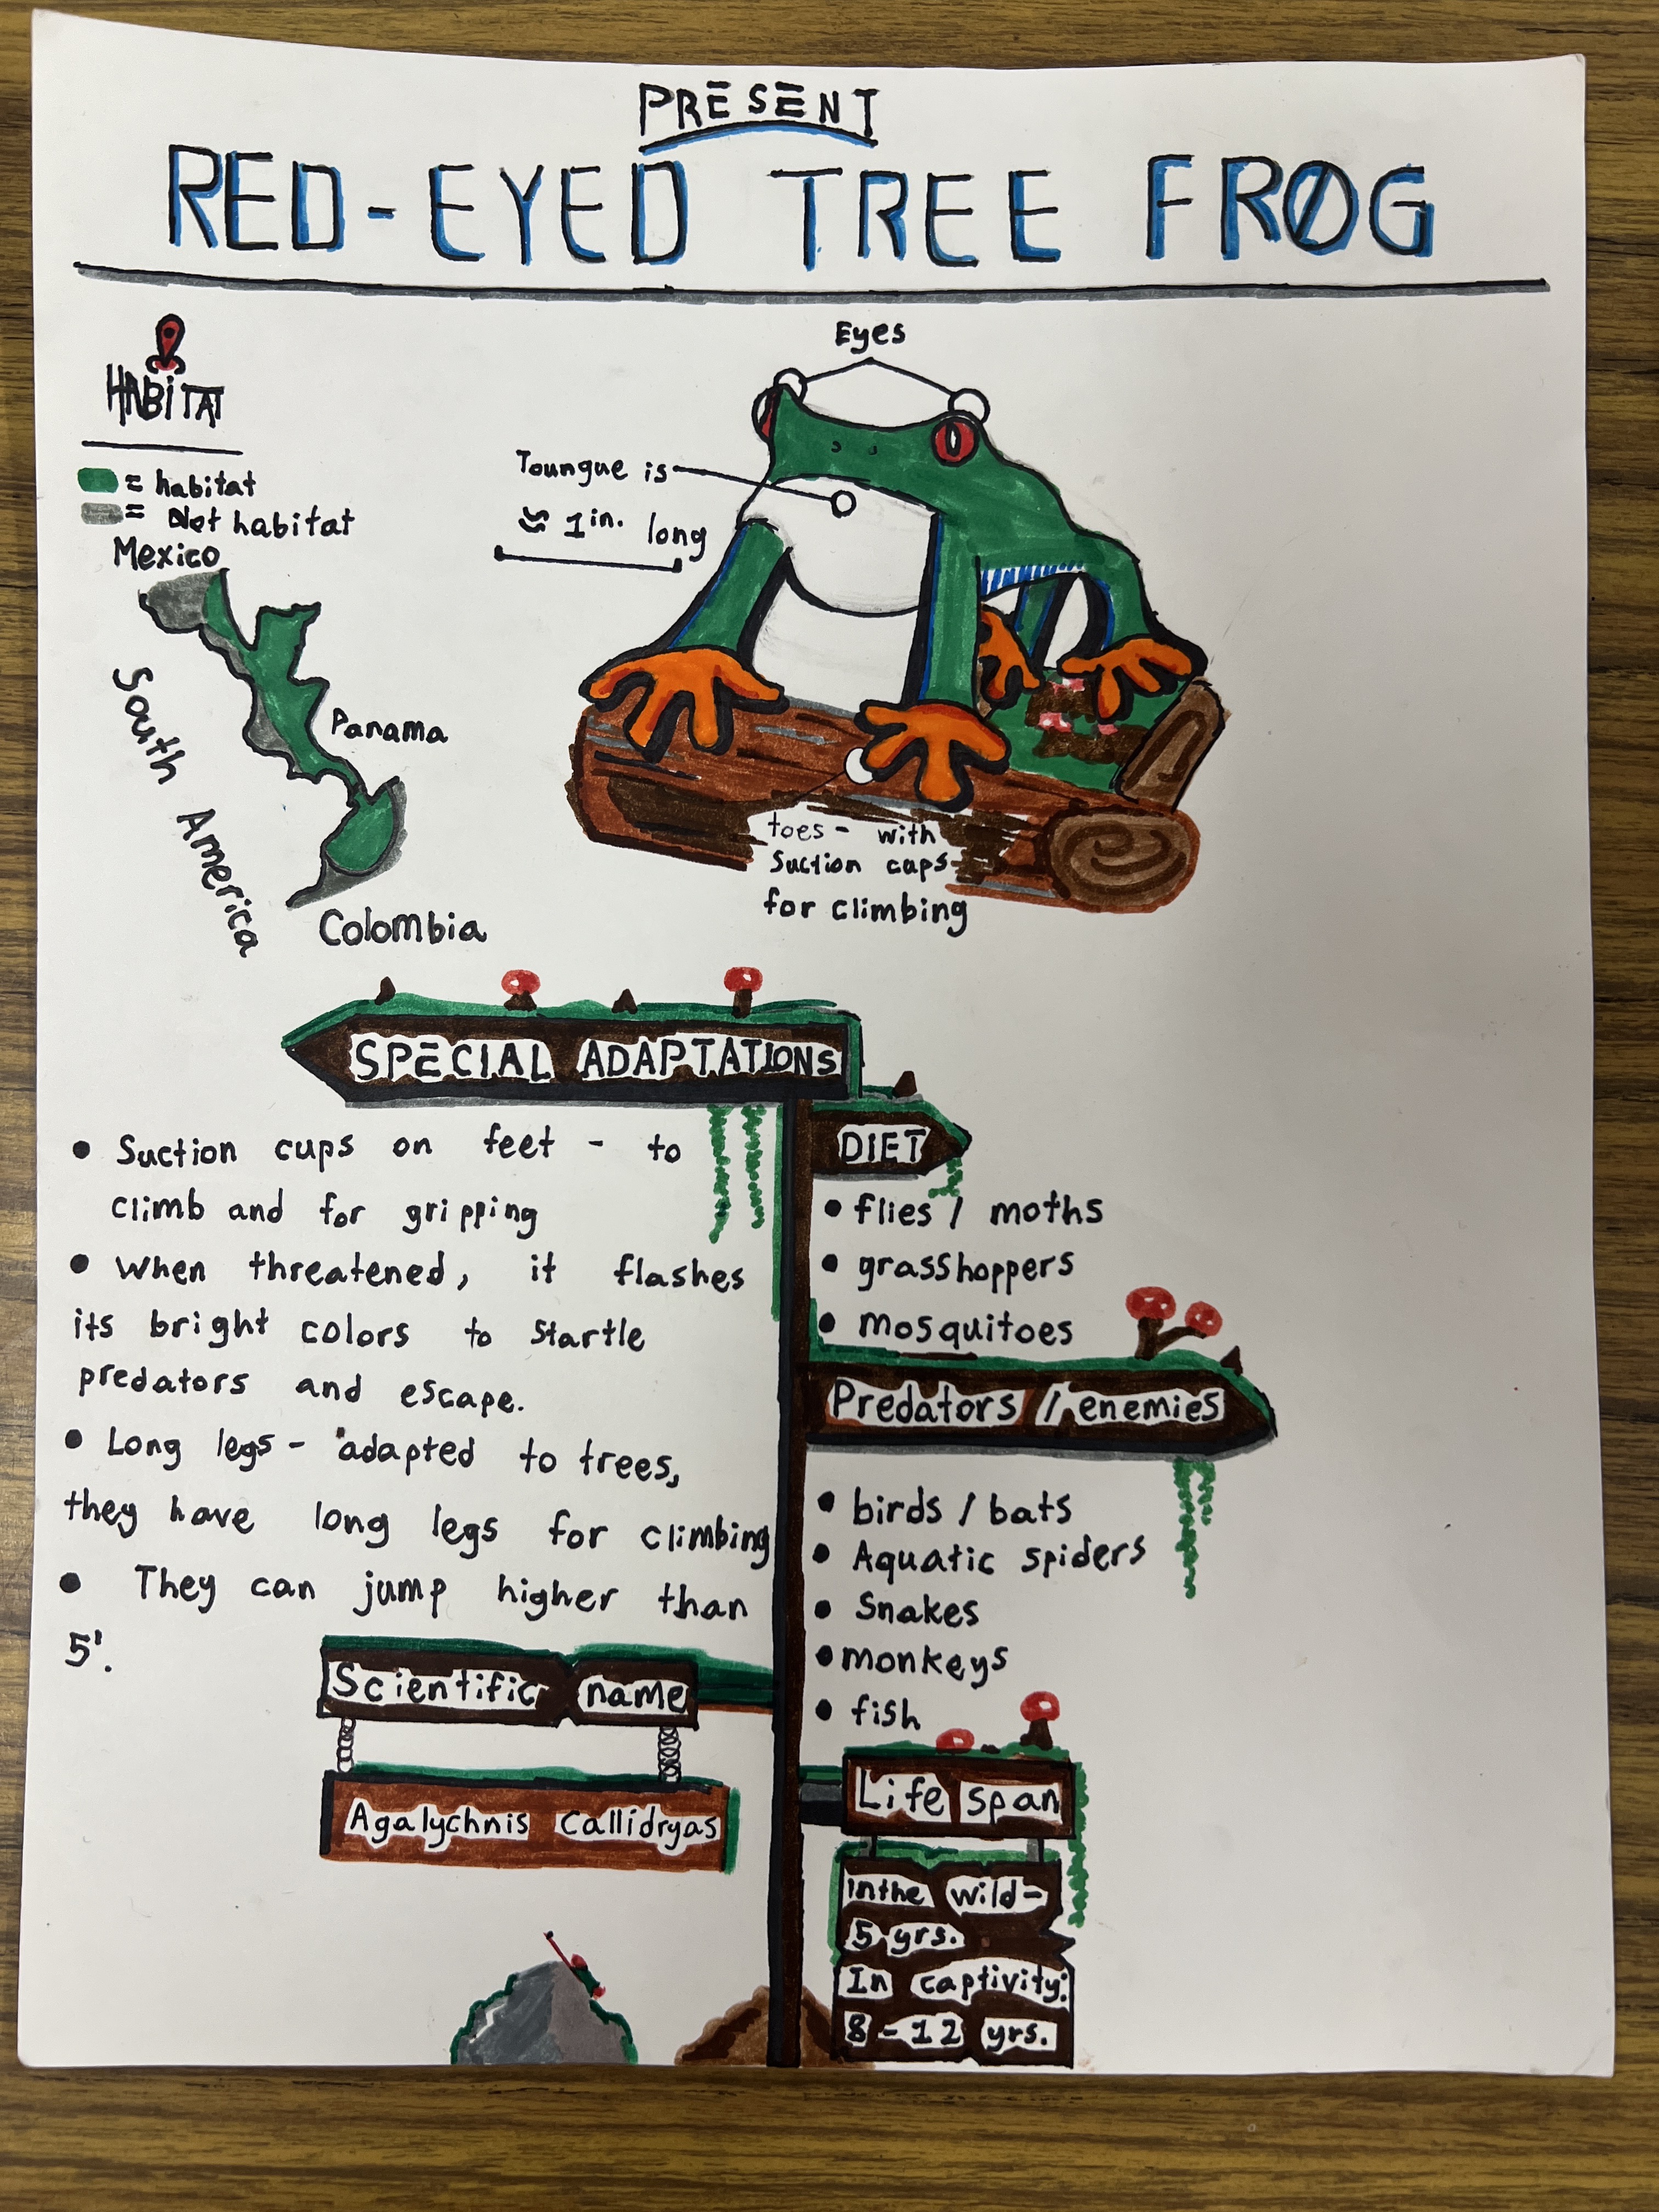 PRESENT
RED-EYED TREE FROG
HABITAT
= habitat
= Not habitat
Mexico
South America
Panama
Colombia
Eyes
Toungue is
≈ 1in. long
toes - with
suction caps
for climbing
SPECIAL ADAPTATIONS
• Suction cups on feet - to
climb and for gripping
• When threatened, it flashes
its bright colors to startle
predators and escape.
• Long legs - adapted to trees,
they have long legs for climbing
• They can jump higher than
5'.
DIET
• flies / moths
• grasshoppers
• mosquitoes
Predators / enemies
• birds / bats
• Aquatic spiders
• Snakes
• monkeys
• fish
Scientific name
Agalychnis Callidryas
Life span
in the wild-
5 yrs.
In captivity:
8-12 yrs.